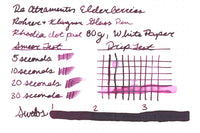 De Atramentis Elderberries
Rohrer & Klingner Glass Pen
Rhodia dot pad 80g, White Paper
Smear Test Drip Test
5 seconds
10 seconds
20 seconds
30 seconds
1 2 3
Swabs